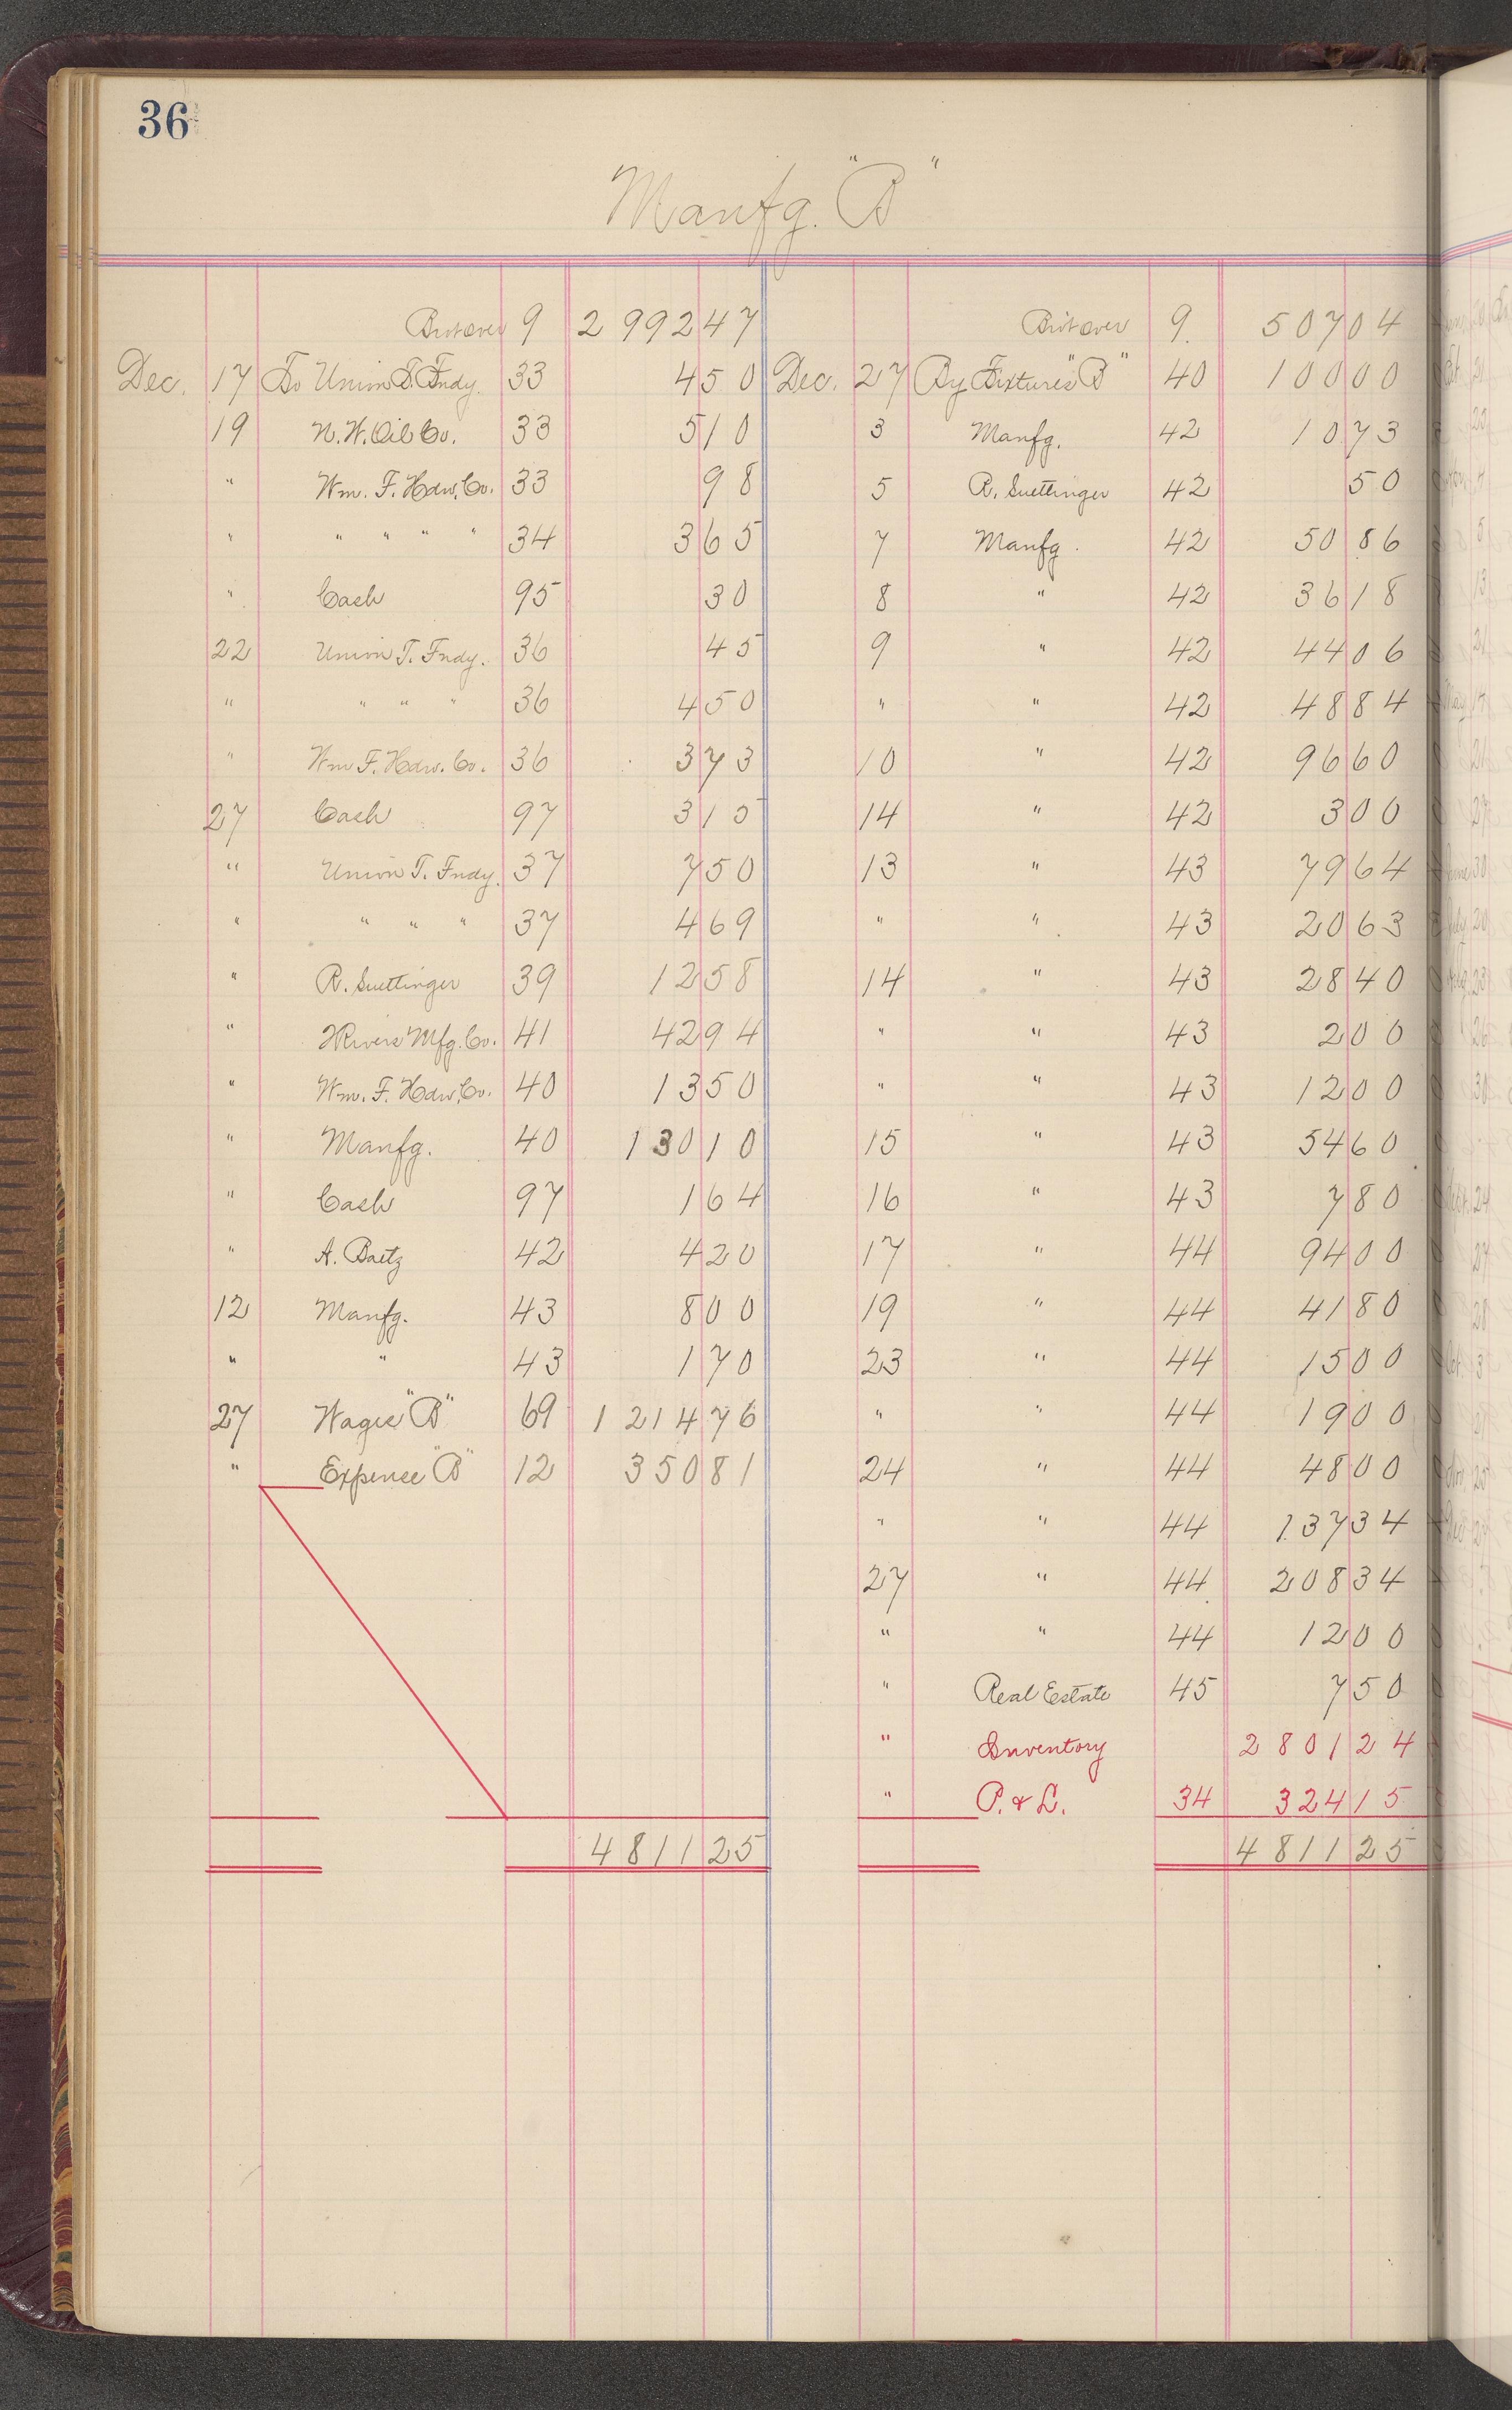 36
Manfg. "B"
Brot over 9 2 992 47
Dec. 17 To Union T. Fndy. 33 4 50
19 N. W. Oil Co. 33 5 10
" Wm. F. Hdw. Co. 33 98
" " " " " 34 3 65
" Cash 95 30
22 Union T. Fndy. 36 45
" " " " 36 4 50
" Wm F. Hdw. Co. 36 3 73
27 Cash 97 3 15
" Union T. Fndy. 37 7 50
" " " " 37 4 69
" R. Suettinger 39 12 58
" 2 Rivers Mfg. Co. 41 42 94
" Wm. F. Hdw. Co. 40 13 50
" Manfg. 40 130 10
" Cash 97 1 64
" A. Baetz 42 4 20
12 Manfg. 43 8 00
" " 43 1 70
27 Wages "B" 69 1 214 76
" Expense "B" 12 350 81
4 811 25
Brot over 9. 507 04
Dec. 27 By Fixtures "B" 40 100 00
3 Manfg. 42 10 73
5 R. Suettinger 42 50
7 Manfg. 42 50 86
8 " 42 36 18
9 " 42 44 06
" " 42 48 84
10 " 42 96 60
14 " 42 3 00
13 " 43 79 64
" " 43 20 63
14 " 43 28 40
" " 43 2 00
" " 43 12 00
15 " 43 54 60
16 " 43 7 80
17 " 44 94 00
19 " 44 41 80
23 " 44 15 00
" " 44 19 00
24 " 44 48 00
" " 44 137 34
27 " 44 208 34
" " 44 12 00
" Real Estate 45 7 50
" Inventory 2 801 24
" P. & L. 34 324 15
4 811 25